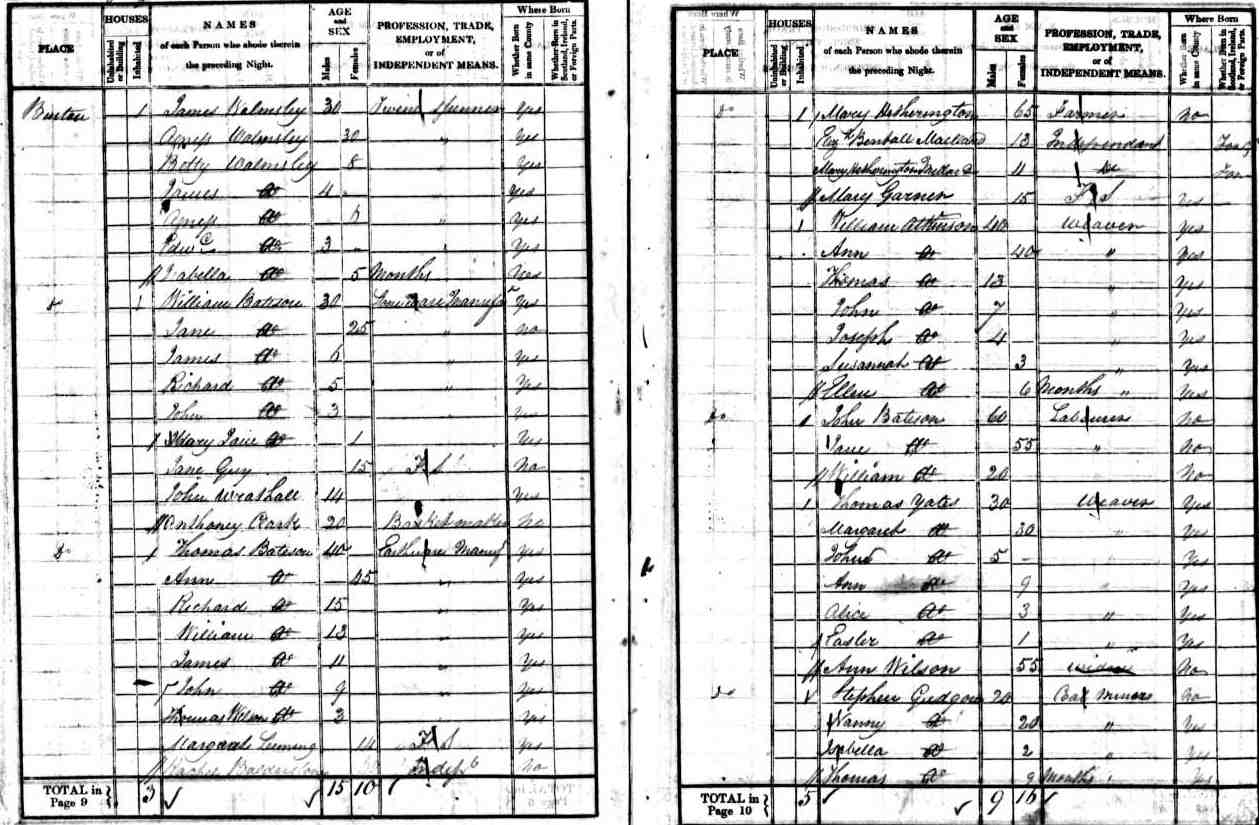 PLACE
HOUSES
Uninhabited or Building
Inhabited
NAMES
of each Person who abode therein
the preceding Night.
AGE and SEX
Males
Females
PROFESSION, TRADE,
EMPLOYMENT,
or of
INDEPENDENT MEANS.
Where Born
Whether Born in same County
Whether Born in Scotland, Ireland, or Foreign Parts.
1 James Walmsley 30 Spinner Yes
Agness Walmsley 30 " Yes
Betty Walmsley 8 " Yes
James do 4 " Yes
Agness do 6 " Yes
do 3 " Yes
Isabella do 5 Months Yes
do 1 William Bateson 30 Yes
Jane do 25 " No
James do 6 " Yes
Richard do 5 " Yes
John do 3 " Yes
Mary Jane do 1 Yes
Jane Guy 15 F S No
John Wrathall 14 Yes
Anthoney Clark 20 Basket maker No
do 1 Thomas Bateson 40 Earthware Manuf Yes
Ann do 45 " Yes
Richard do 15 " Yes
William do 13 " Yes
James do 11 " Yes
John do 9 " Yes
Thomas Wilson do 3 " Yes
Margaret Leeming 14 F S Yes
Indep No
TOTAL in Page 9 } 3 15 10
PLACE
HOUSES
Uninhabited or Building
Inhabited
NAMES
of each Person who abode therein
the preceding Night.
AGE and SEX
Males
Females
PROFESSION, TRADE,
EMPLOYMENT,
or of
INDEPENDENT MEANS.
Where Born
Whether Born in same County
Whether Born in Scotland, Ireland, or Foreign Parts.
do 1 Mary Hetherington 65 Farmer No
13 Independant
Mary Hetherington 11 do
Mary Garner 15 F S Yes
1 William Atkinson 40 Weaver Yes
Ann do 40 " Yes
Thomas do 13 " Yes
John do 7 " Yes
Joseph do 4 " Yes
Susannah do 3 " Yes
Ellen do 6 Months " Yes
do 1 John Bateson 60 Labourer No
Jane do 55 " No
William do 20 No
1 Thomas Yates 30 Weaver Yes
Margaret do 30 " Yes
John do 5 " Yes
Ann do 9 " Yes
Alice do 3 " Yes
Easter do 1 " Yes
Ann Wilson 55 No
do Stephen Gudgeon 20 Coal miner No
Nanny do 20 " Yes
Isabella do 2 " Yes
Thomas do 9 Months Yes
TOTAL in Page 10 } 5 9 16